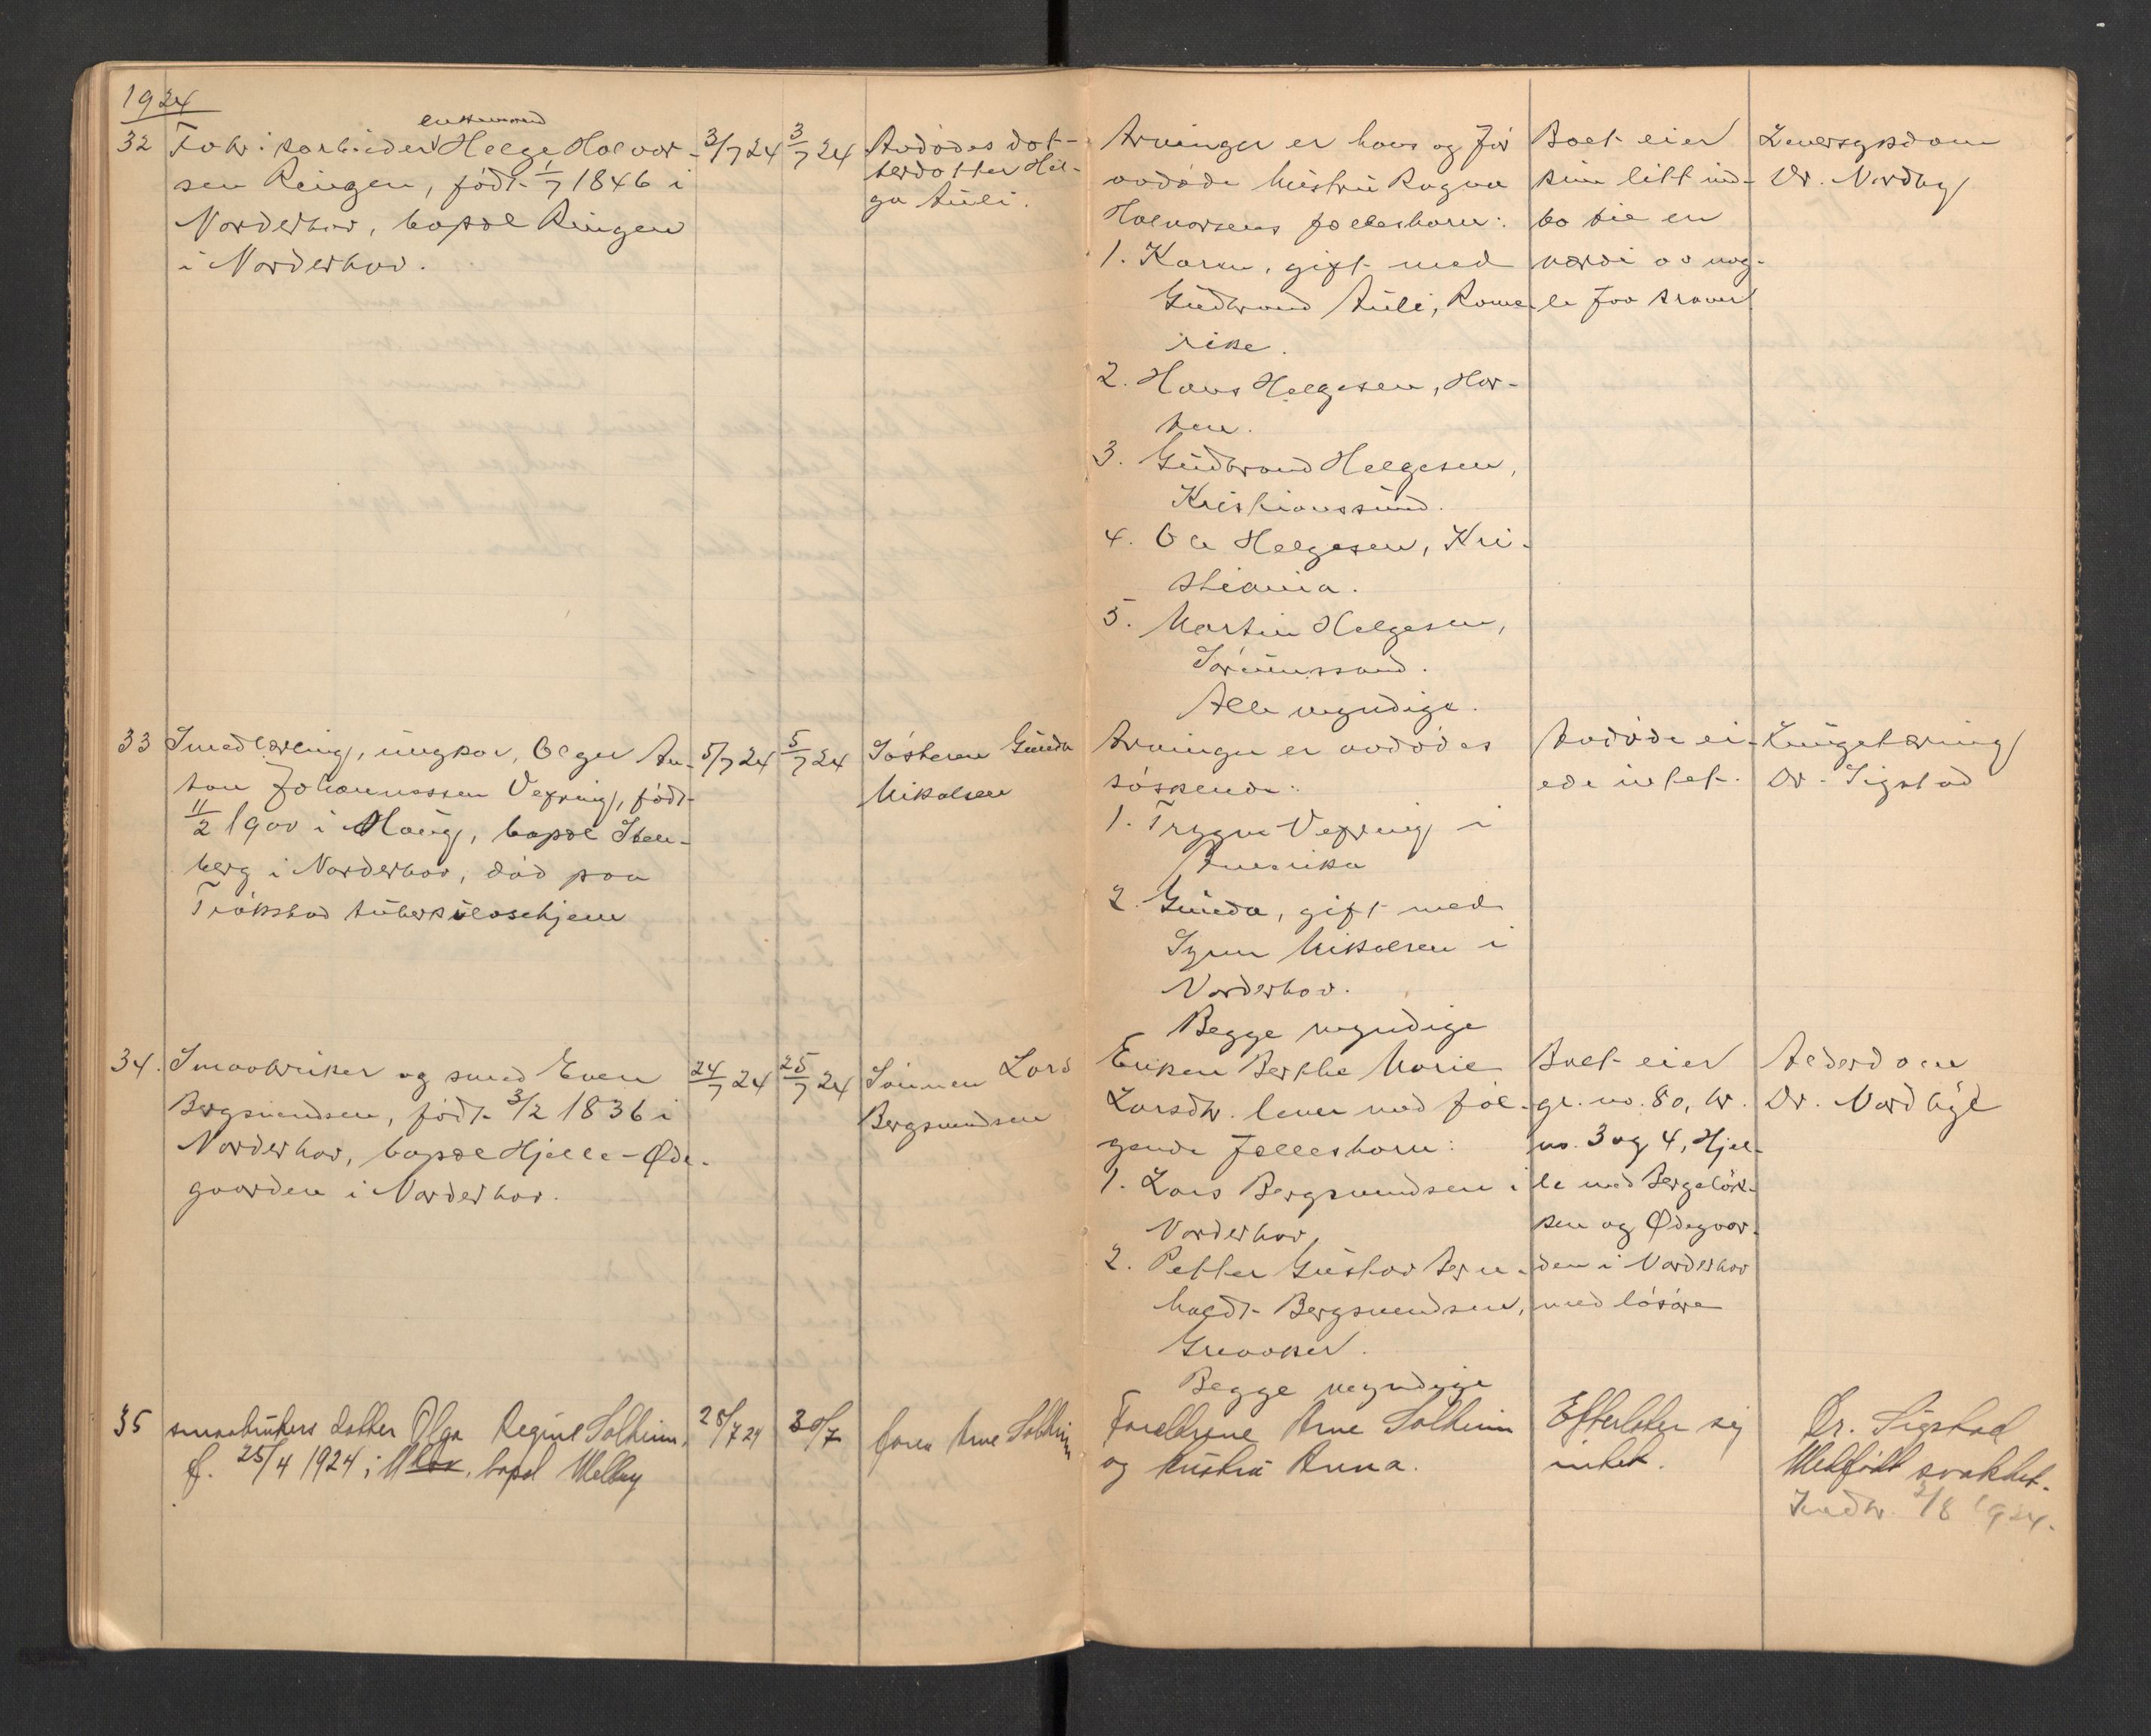 1924
32
enkemand
Fabrikarbeider Helge Halvor-
sen Ringen, födt 1/7 1846 i
Norderhov, bopæl Ringen
i Norderhov.
3/7 24
3/7 24
Avdödes dat-
terdatter Hel-
ga Auli.
Arvinger er hans og för
avdöde hustru Ragna
Halvorsens fællesbarn:
1. Karen, gift med
Gudbrand Auli, Rome-
rike.
2. Hans Helgesen, Hor-
ten.
3. Gudbrand Helgesen,
Kristianssund.
4. Ole Helgesen, Kri-
stiania.
5. Martin Helgesen,
Sörumssand.
Alle myndige.
Boet eier
kun litt ind-
bo til en
værdi av nog-
le faa kroner
Leversygdom
Dr. Nordby
33
Smedlærling, ungkar, Olger An-
ton Johannessen Vexring, födt
11/2 1900 i Haug, bopæl Sten-
berg i Norderhov, död paa
Trökstad tuberkulosehjem
5/7 24
5/7 24
Sösteren Gunda
Mikalsen
Arvinger er avdödes
söskende:
1. Trygve Vexring i
Amerika
2. Gunda, gift med
Syver Mikalsen i
Norderhov.
Begge myndige
Avdöde ei-
ede intet.
Lungetæring
Dr. Sigstad
34.
Smaabruker og smed Even
Bergsundsen, födt 3/2 1836 i
Norderhov, bopæl Hjelle-Øde-
gaarden i Norderhov.
24/7 24
25/7 24
Sönnen Lars
Bergsundsen
Enken Berthe Marie
Larsdtr. lever med föl-
gende fællesbarn:
1. Lars Bergsundsen i
Norderhov
2. Petter Gustav Bern-
hardt Bergsundsen,
Greaaker.
Begge myndige
Boet eier
gr. no. 80, br.
no. 3 og 4, Hjel-
le med Bergelök-
ken og Ødegaar-
den i Norderhov
med lösöre
Alderdom
Dr. Nordbye
35
smaabrukers datter Olga Regine Solheim,
f. 25/4 1924 i Nhov, bopæl Melby
28/7 24
30/7
faren Arne Solheim
Forældrene Arne Solheim
og hustru Anna.
Efterlater sig
intet.
Dr. Sigstad
Medfödt svakhet.
Indbr. 2/8 1924.